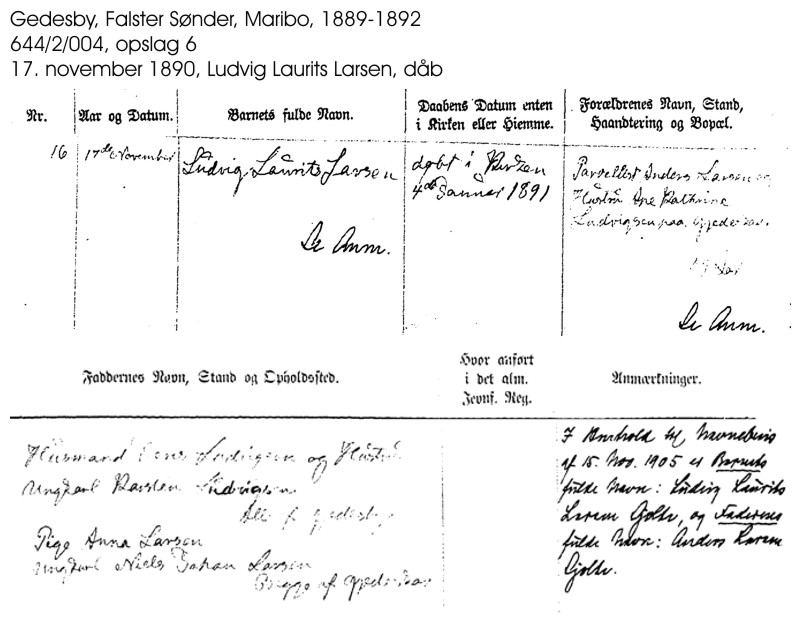 Gedesby, Falster Sønder, Maribo, 1889-1892
644/2/004, opslag 6
17. november 1890, Ludvig Laurits Larsen, dåb
Nr.
Aar og Datum.
Barnets fulde Navn.
Daabens Datum enten
i Kirken eller Hjemme.
Forældrenes Navn, Stand,
Haandtering og Bopæl.
16
17de November
Ludvig Laurits Larsen
døbt i Kirken
4de Januar 1891
Parcellist Anders Larsen og
Hustru Ane Kathrine
Ludvigsen paa
Se Anm.
Se Anm.
Faddernes Navn, Stand og Opholdssted.
Hvor anført
i det alm.
Jevnf. Reg.
Anmærkninger.
Husmand Ludvigsen og Hustru
Ungkarl Karsten Ludvigsen
Alle af Gedesby
Pige Anna Larsen
Ungkarl Niels Johan Larsen
Begge af
I Henhold til Navnebevis
af 15. Nov. 1905 er Barnets
fulde Navn: Ludvig Laurits
Larsen Gjølbo, og Faderens
fulde Navn: Anders Larsen
Gjølbo.